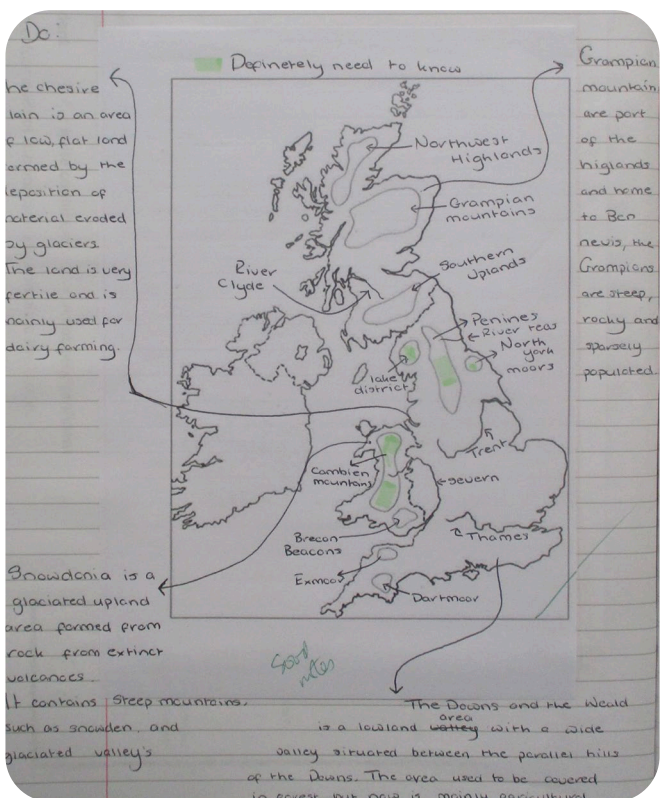 Do:
Definerely need to know
he chesire
lain is an area
f low, flat land
ormed by the
eposition of
aterial eroded
by glaciers.
The land is very
fertile and is
mainly used for
dairy farming.
Grampian
mountain
are part
of the
higlands
and home
to Ben
nevis, the
Grampians
are steep,
rocky and
sparsely
populated.
Northwest
Highlands
Grampian
mountains
River
Clyde
Southern
Uplands
Penines
River tees
North
york
moors
lake
district
Trent
Cambien
mountains
severn
Brecon
Beacons
Thames
Exmoor
Dartmoor
Snowdonia is a
glaciated upland
area formed from
rock from extinct
volcanoes.
It contains steep mountains.
such as snowden, and
glaciated valley's
Good
notes
The Downs and the Weald
area
is a lowland valley with a wide
valley situated between the parallel hills
of the Downs. The area used to be covered
in forest but now is mainly agricultural